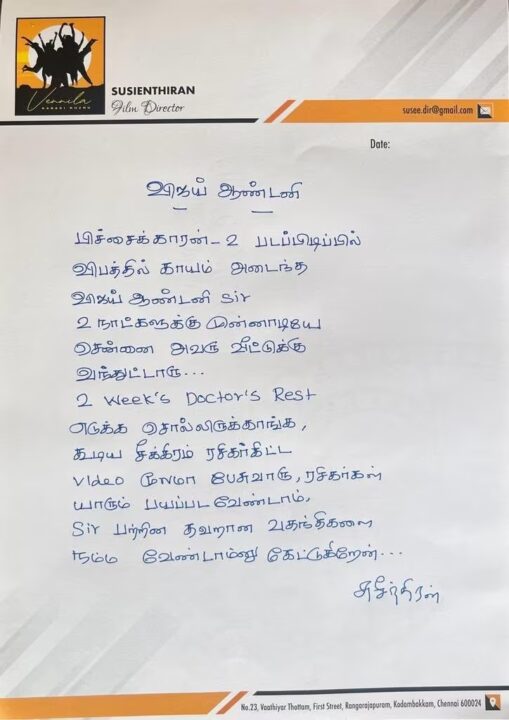 Vennila
KABADI KUZHU
SUSIENTHIRAN
Film Director
susee.dir@gmail.com
Date:
விஜய் ஆண்டனி
பிச்சைக்காரன் - 2 படப்பிடிப்பில்
விபத்தில் காயம் அடைந்த
விஜய் ஆண்டனி Sir
2 நாட்களுக்கு முன்னாடியே
சென்னை அவரு வீட்டுக்கு
வந்துட்டாரு...
2 Week's Doctor's Rest
எடுக்க சொல்லிருக்காங்க,
கூடிய சீக்கிரம் ரசிகர்கிட்ட
Video மூலமா பேசுவாரு, ரசிகர்கள்
யாரும் பயப்பட வேண்டாம்,
Sir பற்றின தவறான வதந்திகளை
நம்ம வேண்டாம்னு கேட்டுகிறேன்...
சுசீந்திரன்
No.23, Vaathiyar Thottam, First Street, Rangarajapuram, Kodambakkam, Chennai 600024